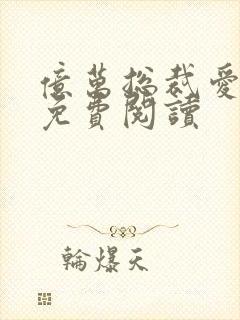 億萬総裁愛
免費閱讀
輪爆天